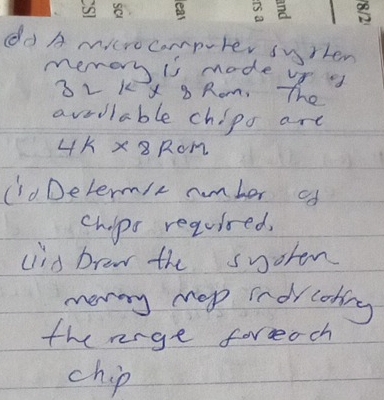 CSI
sc
leav
rs a
and
78/2
d) A microcomputer system
memory is made up of
32 K x 8 Rom. The
available chips are
4K x 8 ROM
(i) Determine number of
chips required.
(ii) Draw the system
memory map indicating
the range foreach
chip